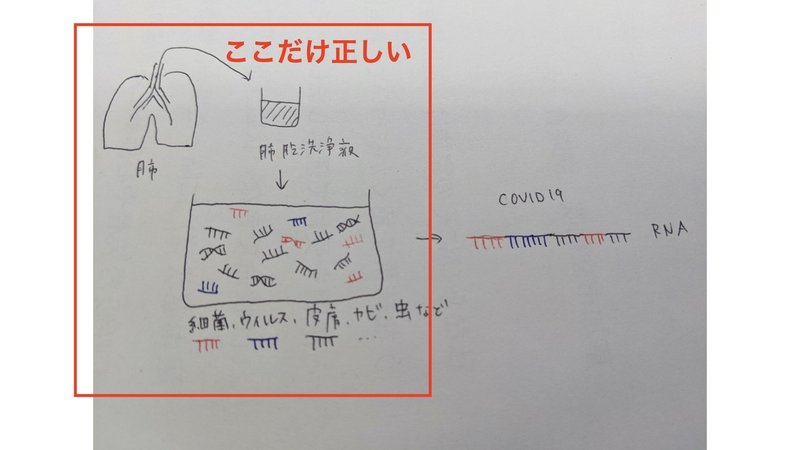 ここだけ正しい
肺
肺胞洗浄液
COVID19
RNA
細菌、ウィルス、皮膚、カビ、虫など
...